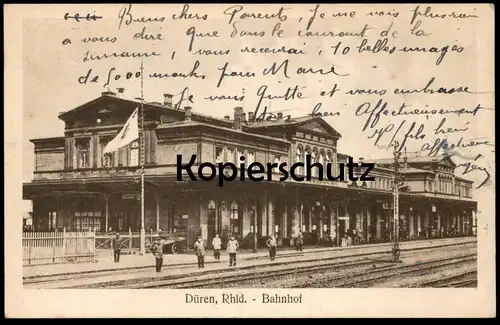 Biens chers Parents, Je ne vais plus rien
à vous dire Que dans le courant de la
semaine, vous recevrai 10 belles images
de 5000 marks pour Marie
Je vous quitte et vous embrasse
bien Affectueusement
Affectueux
Kopierschutz
Düren, Rhld. - Bahnhof